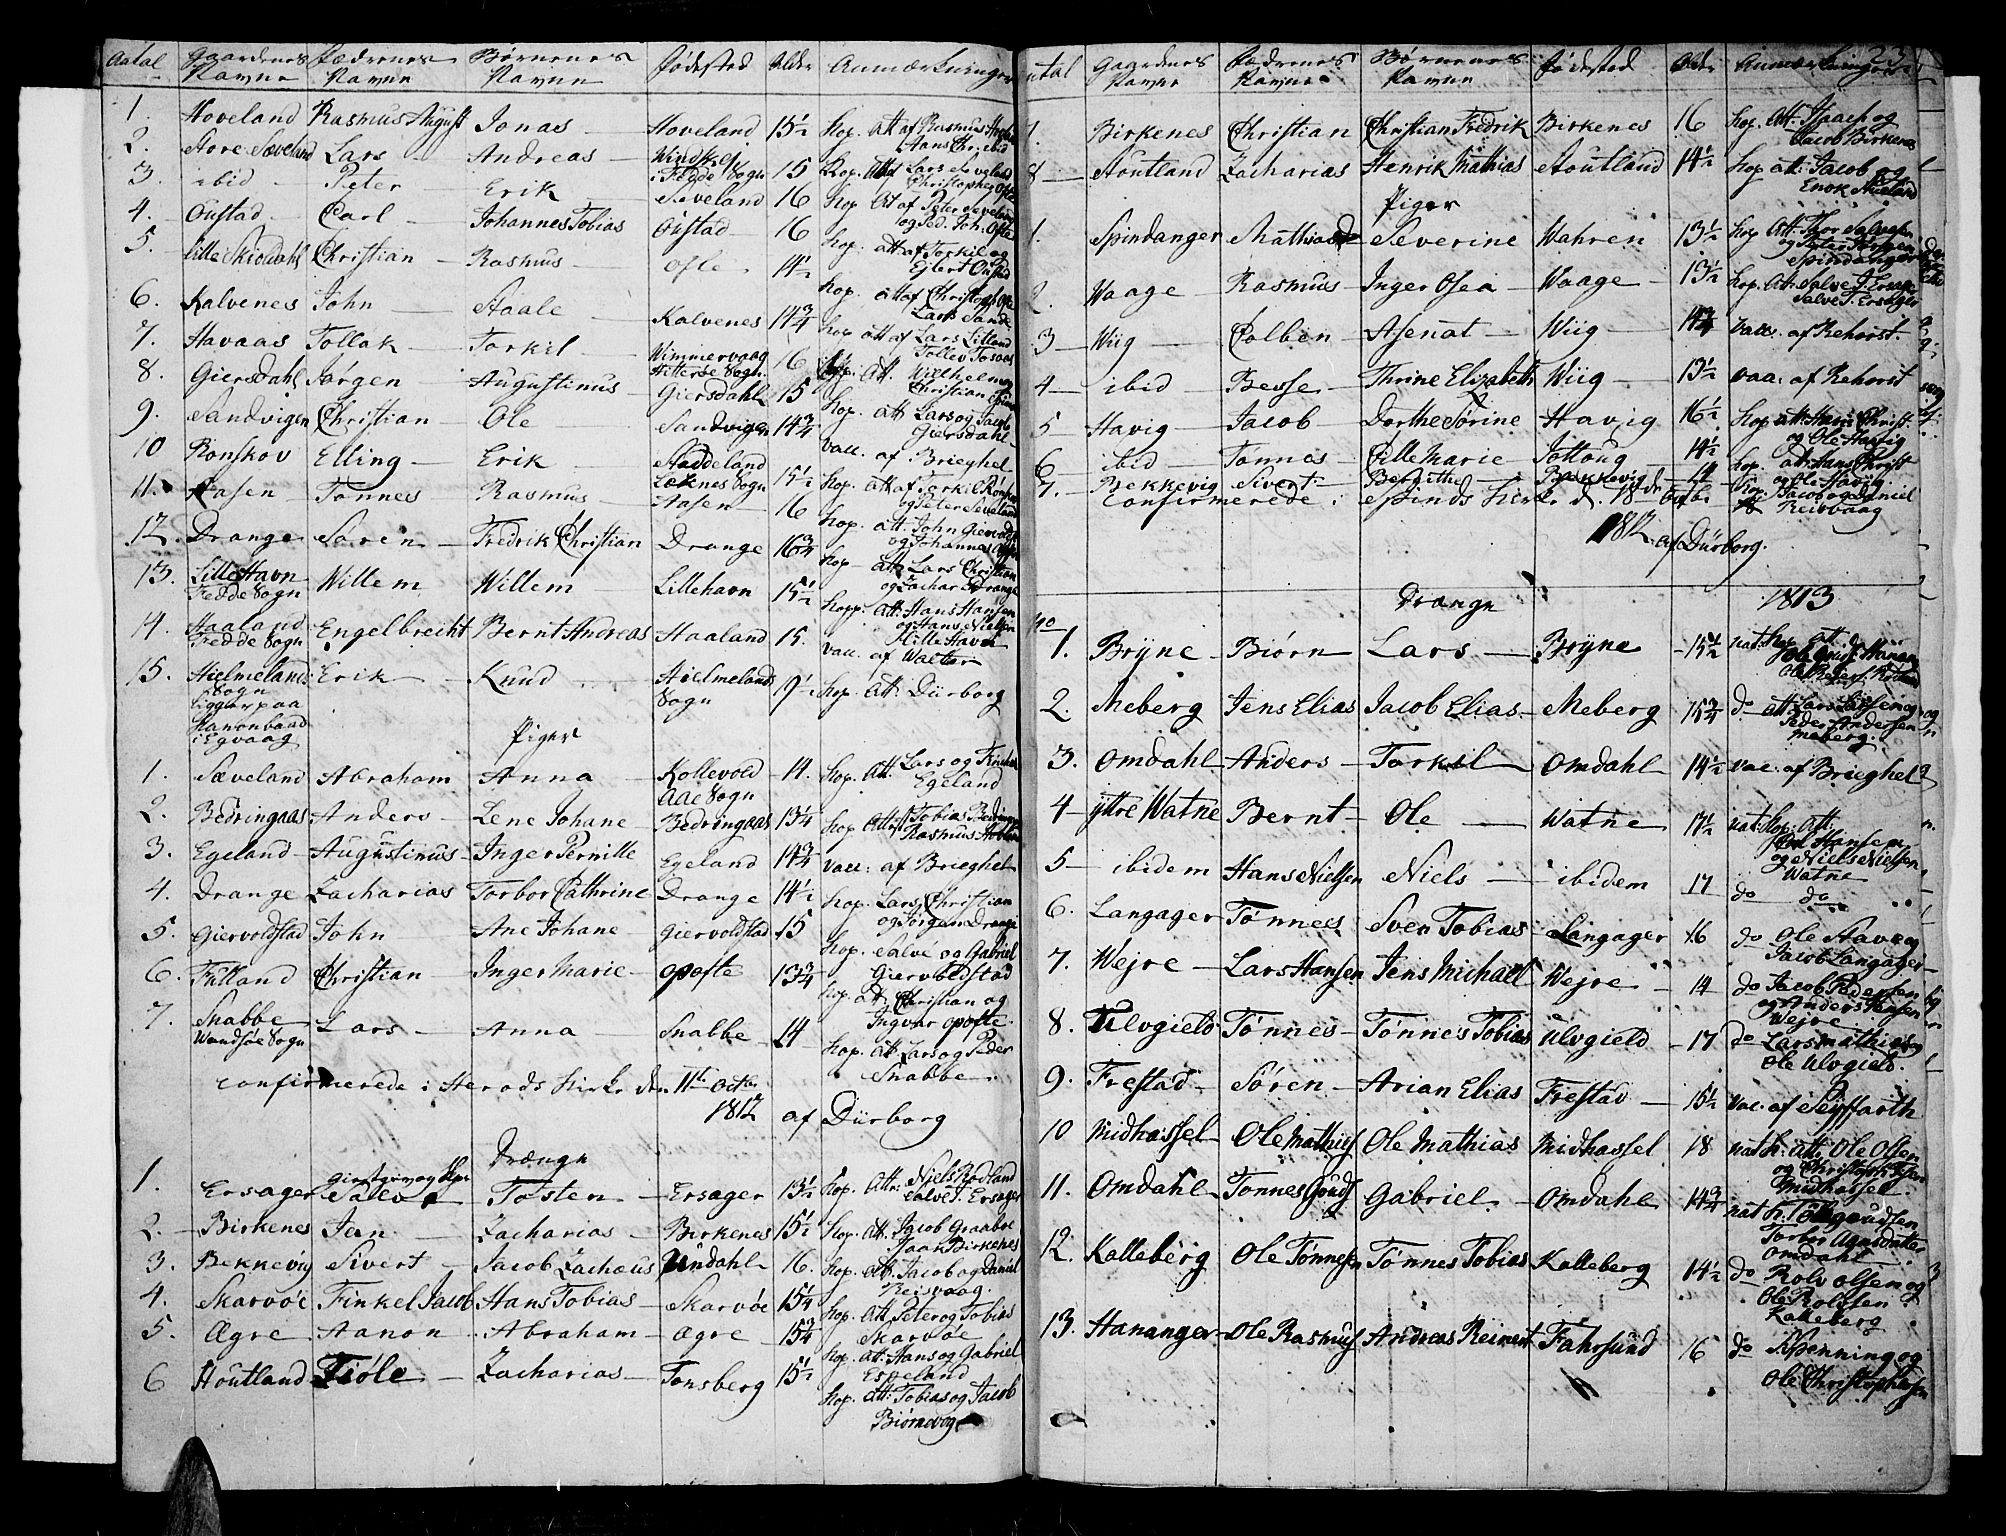 Antal Gaardenes Navne Fædrenes Navne Børnenes Navne Fødested Alder Anmærkninger
1. Hoveland Rasmus August Jonas Hoveland 15½ kop. att af Rasmus
2. Store Sæveland Lars Andreas i Fedde Sogn 15 kop. Att Lars Sæveland
3. ibid Peter Erik Seveland 16 kop Att af Peter Seveland
4. Oustad Carl Johannes Tobias Oustad 16 kop. att af Torkil og Ejlert Oustad
5. Lille Skioldahl Christian Rasmus Ofte 14½ kop. att af Christoph Ofte
6. Kalvenes John Staale Kalvenes 14¾ kop att af Lars Lilland
7. Havaas Tollak Torkil Wimmervaag Hitterøe Sogn 16 kop. Att. Willhelm og Christian
8. Giersdahl Jørgen Augustinus Giersdahl 15 kop. att Lars og Jacob Giersdahl
9. Sandvigen Christian Ole Sandvigen 14¾ vacc. af Brieghel
10 Rønskov Elling Erik Staddeland Løknes Sogn 15½ kop. att af Torkil Rønskov og Peter Seveland
11. Aasen Tønnes Rasmus Aasen 16 kop. att. John Giervold og Johannes
12. Drange Søren Fredrik Christian Drange 16¾ kop att Lars Christian og Zachar Drange
13. Lille Havn Fedde Sogn Willem Willem Lillehavn 15½ kopp. Att: Hans Hansen og Hans Nielsen Lille Havn
14. Haaland Fedde Sogn Engelbrecht Bernt Andreas Haaland 15. vacc. af Walter
15. Hielmelands Sogn ligger paa Kanonbaad i Egvaag Erik Knud Hielmelands Sogn 19½ kop. Att: Dürborg
Piger
1. Sæveland Abraham Anna Kollevold Aae Sogn 14. kop. Att. Lars og Egeland
2. Bedringaas Anders Lene Johane Bedringaas 15¼ kop Att Tobias Bedringaas Rasmus
3. Egeland Augustinus Inger Pernille Egeland 14¾ vacc: af Brieghel
4. Drange Zacharias Torbor Cathrine Drange 14½ kop. Lars Christian og Jørgen Drange
5. Giervoldstad John Ane Johane Giervoldstad 15 kop. Salve og Gabriel Giervoldstad
6. Fuland Christian Inger Marie Opofte 13¾ kop. att. Christian og Ingvar Opofte
7. Snabbe Wandsøe Sogn Lars Anna Snabbe 14 kop. att Lars og Peder Snabbe
Confirmerede i Herods Kirke den 11te Octbr 1812 af Dürborg
Drænge
1. Ersager Salve Tosten Ersager 13½ kop. Att: Niels Rødland Salve T. Ersager
2. Birkenes Jan Zacharias Birkenes 15½ kop. Att. Jacob Graaboe Isaak Birkenes
3. Bekkevig Sivert Jacob Zachæus 16. kop. att. Jacob og Daniel Reisvaag
4. Skarvøe Finkel Jacob Hans Tobias Skarvøe 15¼ kop. Att Peter og Tobias Skarvøe
5. Ægre Aanon Abraham Ægre 15¾ kop. att: Hans og Gabriel Espeland
6 Houtland Fiøle Zacharias Tonsberg 15½ kop. att: Tobias og Jacob Biørnevog
23
Antal Gaardenes Navne Fædrenes Navne Børnenes Navne Fødested Alder Anmærkninger
7. Birkenes Christian Christian Fredrik Birkenes 16 kop. Att: Isaach og Jacob Birkenes
8 Houtland Zacharias Henrik Mathias Houtland 14½ kop att: Jacob og Enok
Piger
1. Spindanger Mathias Severine Wahren 13½ kop Att: Thor Salvesen og Peter Spindanger
2. Waage Rasmus Inger Osea Waage 13½ kop. Att: Salve J. Ersager Salve T. Ersager
3 Wiig Colben Asenat Wiig 14¾ vacc. af Rehorst.
4 ibid Besse Thrine Elizabeth Wiig 13½ vaa: af Rehorst
5 Havig Jacob Dorthe Sørine Havig 16½ kop att: Hans Christ. og Ole Havig
6 ibid Tønnes Cille Marie Jølloug 14½ kop. att: Hans Christ og Ole Havig
7. Rekkevig Sivert Bergithe Bekkevig 14 kop. Jacob og Daniel Reisvaag
Confirmerede i Spinds Kirke d. 18de Octbr 1812 af Dürborg.
Drænge 1813
No
1. Bryne Biørn Lars Bryne 15½ nat. kop att.
2. Meberg Jens Elias Jacob Elias Meberg 15¾ do att. Lars Larsen og Peder Andersen Meberg.
3. Omdahl Anders Torkel Omdahl 14½ vac. af Brieghel
4 ytre Watne Bernt Ole Watne 17½ nat. kop. att: Hansen og Niels Nielsen Watne
5 ibidem Hans Nielsen Niels ibidem 17 do do
6. Langager Tønnes Sven Tobias Langager 16 do Ole Have og Jacob Langager
7. Wejre Lars Hansen Jens Michael Wejre 14 do Jacob Pedersen og Anders Hansen Wejre
8. Ulvgield Tønnes Tønnes Tobias Ulvgield 17 do Lars Mathias og Ole Ulvgield.
9. Frestad Søren Arian Elias Frestad 15½ vac. af Seyffarth
10 Midhassel Ole Mathies Ole Mathias Midhassel 18 nat k: att: Ole Olsen og Christoph Olsen Midhassel
11. Omdahl Tønnes Gouds Gabriel Omdahl 14¾ nat k. Torbor Aanensdatter Omdahl
12. Kalleberg Ole Tønnesen Tønnes Tobias Kalleberg 14½ do Rolv Olsen og Ole Rolvsen Kalleberg
13. Hananger Ole Rasmus Andreas Reinert Fahrsund 16 do Henning og Ole Christophersen